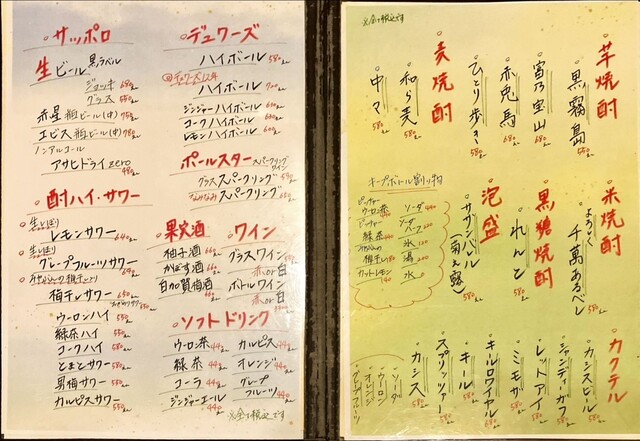 サッポロ
生ビール 黒ラベル
ジョッキ 680
グラス 580
赤星 瓶ビール(中) 780
エビス 瓶ビール(中) 780
ノンアルコール
アサヒドライzero 480
酎ハイ・サワー
生しぼり
レモンサワー 640
生しぼり
グレープフルーツサワー 640
梅干しサワー 650
ウーロンハイ 550
緑茶ハイ 550
コークハイ 580
とまとサワー 580
男梅サワー 580
カルピスサワー 580
デュワーズ
ハイボール 580
デュワーズ12年
ハイボール 700
ジンジャーハイボール 630
コークハイボール 630
レモンハイボール 630
ポールスター スパークリングワイン
グラス スパークリング
なみなみ スパークリング
果実酒
柚子酒
かぼす酒
白加賀梅酒
ワイン
グラスワイン
赤or白
ボトルワイン
赤or白
ソフトドリンク
ウーロン茶 440
緑茶 440
コーラ 440
ジンジャーエール 440
カルピス 440
オレンジ 440
グレープフルーツ 440
※全て税込です
※全て税込です
芋焼酎
黒霧島 550
富乃宝山 680
赤兎馬 680
麦焼酎
ひとり歩き 580
和ら麦 580
中々 580
米焼酎
よろしく千萬あるべし 580
黒糖焼酎
れんと 580
泡盛
サザンバレル(菊之露) 580
キープボトル割り物
ピッチャー
ウーロン茶
ピッチャー
緑茶
梅干し
カットレモン
ソーダ
ソーダハーフ
氷
湯
水 0
カクテル
カシスビール 580
シャンディーガフ 580
レッドアイ 580
ミモザ 580
キールロワイヤル 580
キール 580
スプリッツァー 580
カシス 580
ソーダ
ウーロン
オレンジ
グレープフルーツ